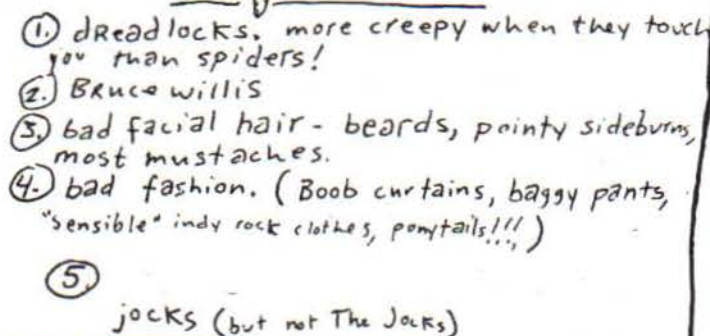 ①. dReadlocks. more creepy when they touch
you than spiders!
②. BRuce willis
③. bad facial hair - beards, pointy sideburns,
most mustaches.
④. bad fashion. (Boob curtains, baggy pants,
"sensible" indy rock clothes, ponytails!!!,)
⑤.
jocks (but not The Jocks)